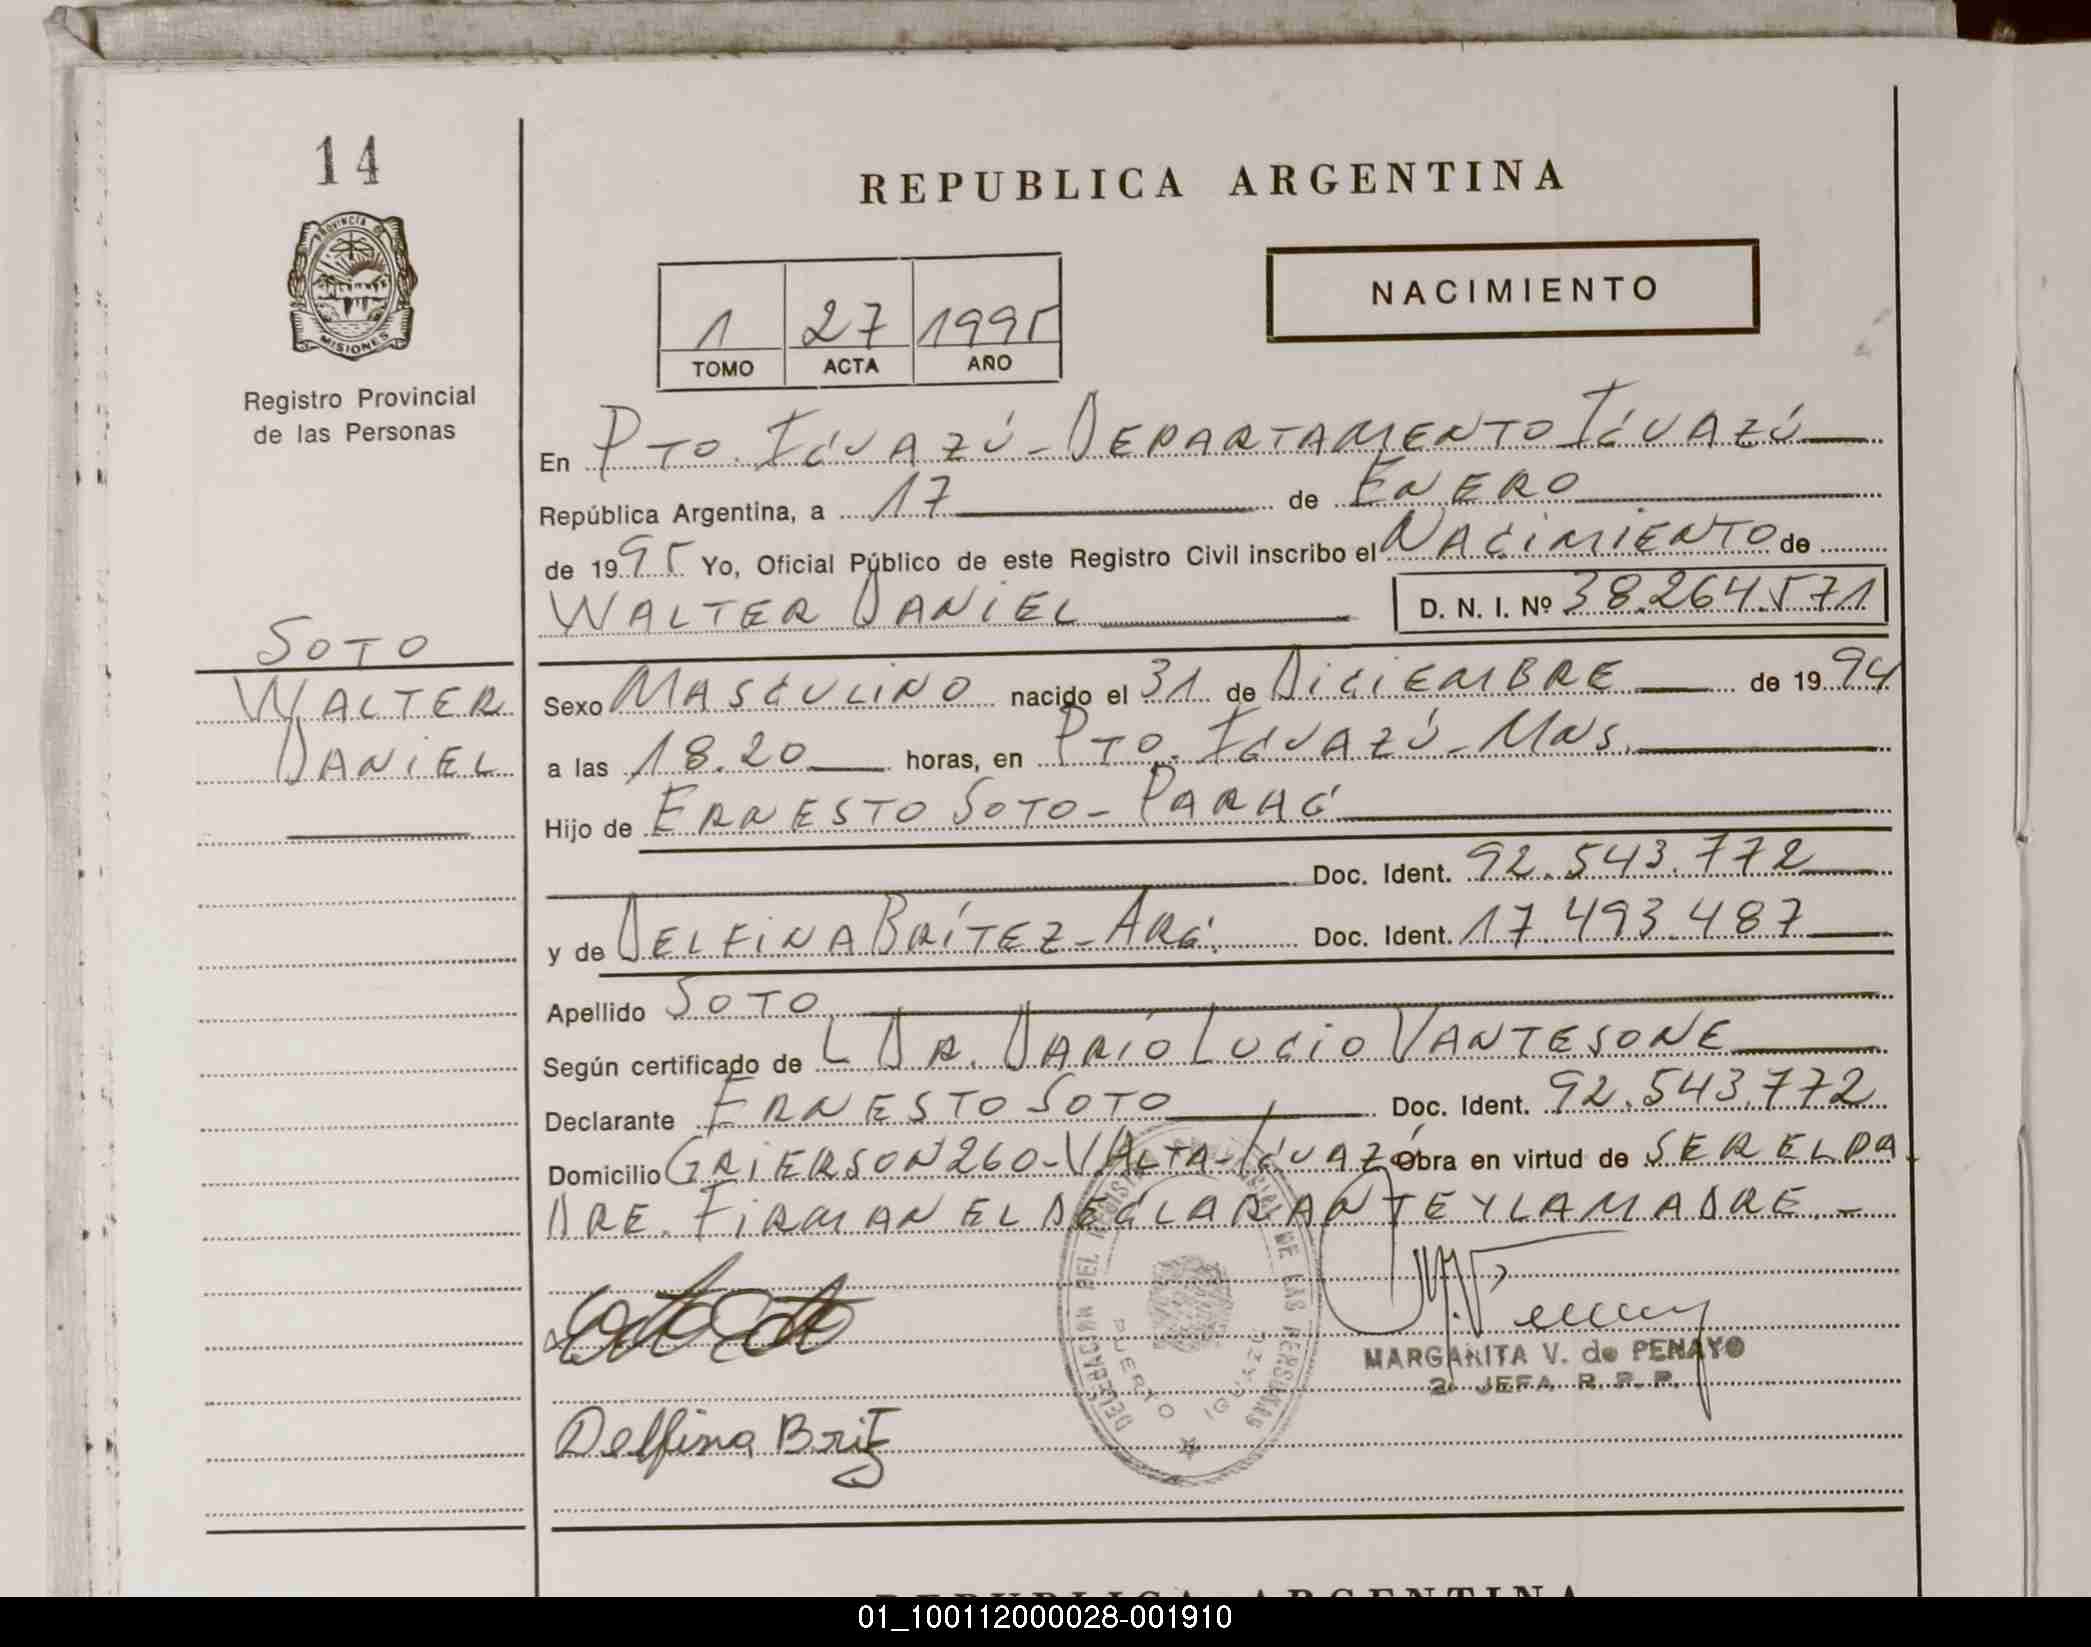 14
PROVINCIA DE
MISIONES
Registro Provincial
de las Personas
SOTO
WALTER
DANIEL
REPUBLICA ARGENTINA
NACIMIENTO
1 27 1995
TOMO ACTA AÑO
En PTO. IGUAZÚ - DEPARTAMENTO IGUAZÚ
República Argentina, a 17 de ENERO
de 1995 Yo, Oficial Público de este Registro Civil inscribo el NACIMIENTO de
WALTER DANIEL D. N. I. Nº 38.264.571
Sexo MASCULINO nacido el 31 de DICIEMBRE de 1994
a las 18.20 horas, en PTO. IGUAZÚ - MNS.
Hijo de ERNESTO SOTO - PARAG.
Doc. Ident. 92.543.772
y de DELFINA BRÍTEZ - ARG. Doc. Ident. 17.493.487
Apellido SOTO
Según certificado de L DR. DARIO LUCIO VANTESONE
Declarante ERNESTO SOTO Doc. Ident. 92.543.772
Domicilio GRIERSON 260 - V/ALTA - IGUAZÚ Obra en virtud de SER EL PA
DRE. FIRMAN EL DECLARANTE Y LA MADRE. -
DELEGACION DEL REGISTRO PROVINCIAL DE LAS PERSONAS
PUERTO IGUAZU
MARGARITA V. de PENAYO
2ª JEFA R. P. P.
Delfina Britz
REPUBLICA ARGENTINA
01_100112000028-001910